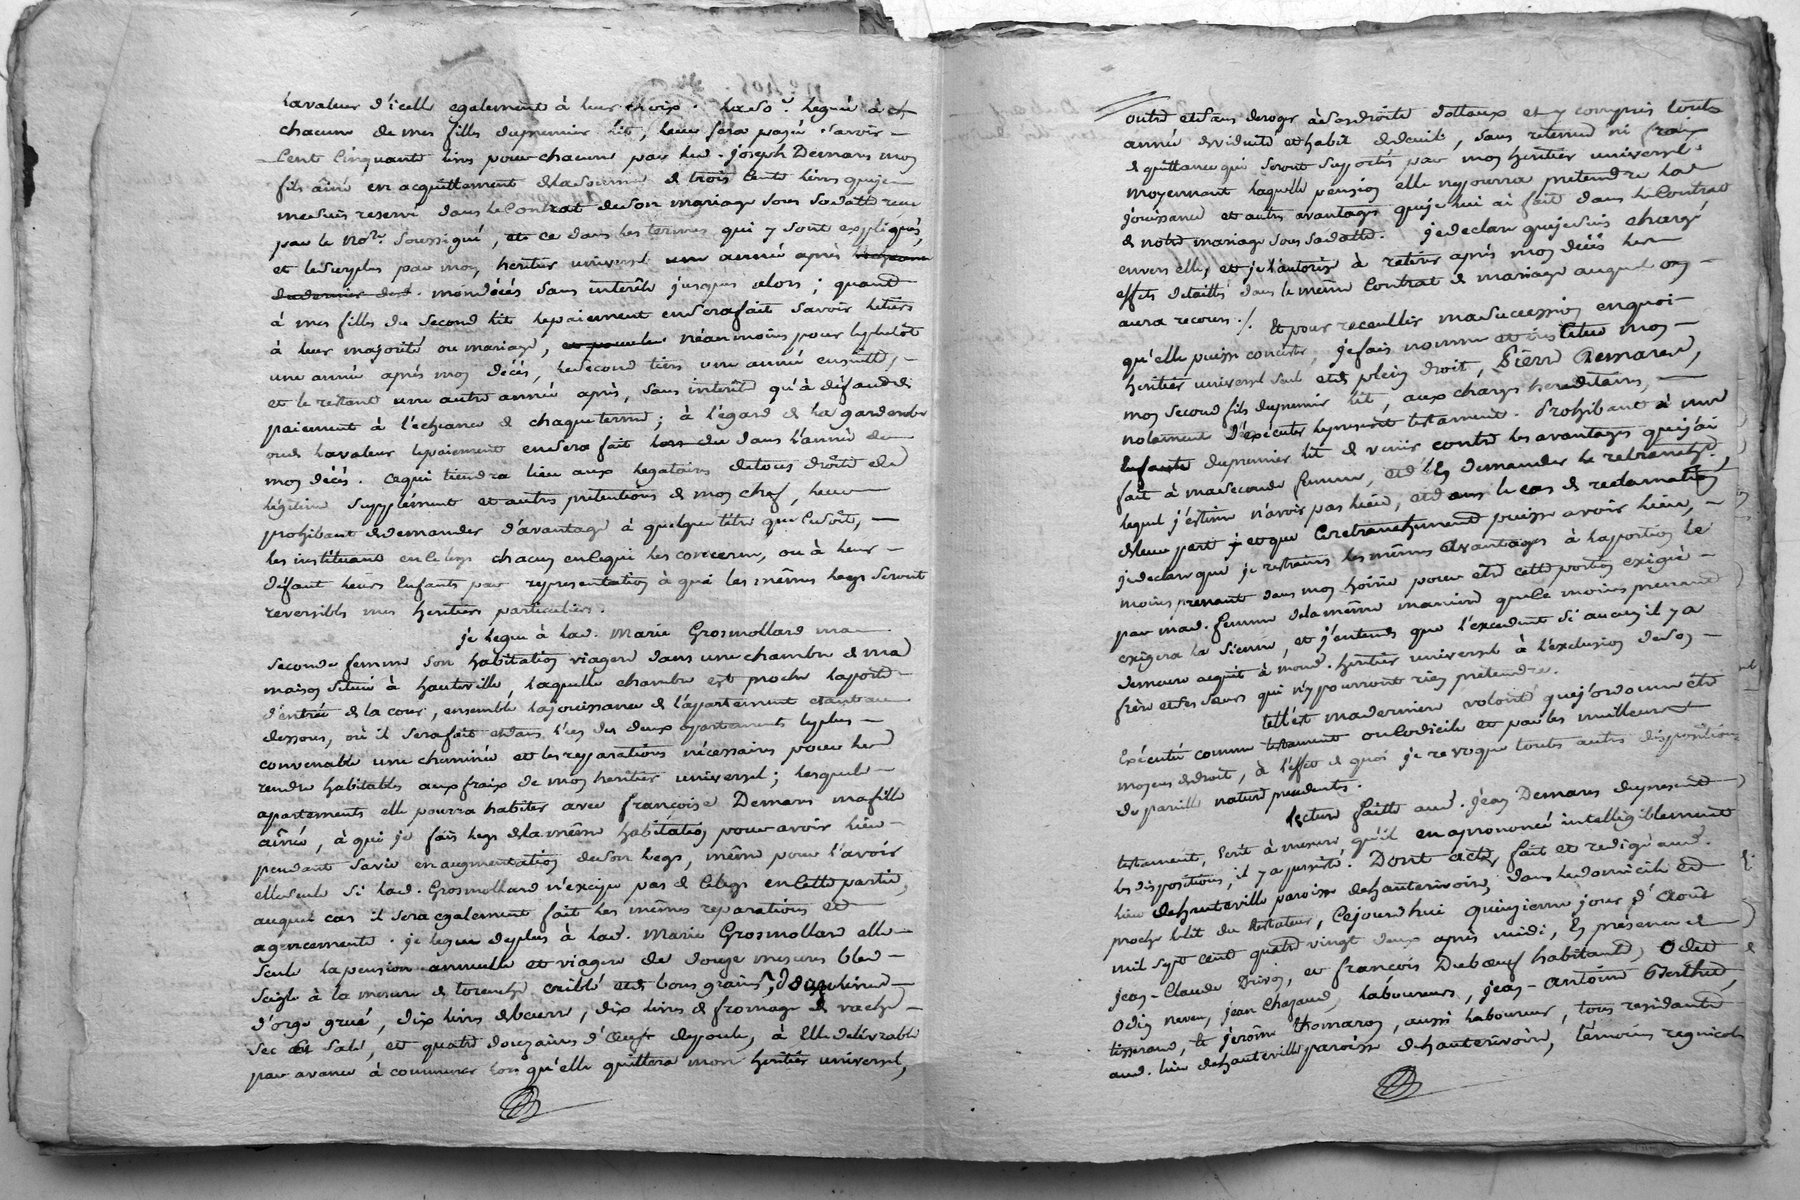 lavaleur d'icelle egalement à leur choix. lad. so.e leguée à ch
chacune de mes filles dupremier lit, leur sera payée savoir
Cent Cinquante livres pour chacune par led. joseph Demares mon
fils âiné en acquittement delasomme de trois Cents livres queje
mesuis reservé dans le Contrat deson mariage sous sadatte reçu
par le no.re soussigné, et ce dans les termes qui y sont expliqués,
et lesurplus par mon heritier universel une année après
mondécès sans interêts jusques alors; quand
à mes filles du second lit lepaiement enserafait savoir letiers
à leur majorité ou mariage, néanmoins pour leplutôt
une année après mon décès, lesecond tiers une année ensuitte,
et le restant une autre année après, sans interêts qu'à défaut de
paiement à l'echeance de chaque terme; à l'égard de la garderobe
oude lavaleur lepaiement ensera fait dans l'année de
mon décès. Cequi tiendra lieu aux legataires detous droits de
légitime supplément et autres pretentions de mon chef, leur
prohibant dedemander d'avantage à quelque titre que cesoit,
les instituant en ce legs chacun encequi les concerne, ou à leur
défaut leurs Enfants par representation à qui les mêmes legs seront
reversibles mes heritiers particuliers.
je legue à lad. Marie Grosmollard ma
seconde femme son habitation viagere dans une chambre de ma
maison située à hauteville, laquelle chambre est proche laporte
d'entrée de la cour, ensemble lajouissance de l'appartement etantau
dessous, où il serafait etdans l'un des deux apartements leplus
convenable une cheminée et les reparations nécessaires pour les
rendre habitables aux frais de mon heritier universel; lesquels
apartements elle pourra habiter avec françoise Demares mafille
ainée, à qui je fais legs delamême habitation pour avoir lieu
pendant savie en augmentation deson legs, même pour l'avoir
elleseule si lad. Grosmollard n'excipe pas de celegs encette partie,
auquel cas il sera egalement fait les mêmes reparations et
agencements. je legue deplus à lad. Marie Grosmollard elle
seule la pension annuelle et viagere de douze mesures bled
seigle à la mesure de torenche, criblé et de bons grains, deux livres
d'orge grué, dix livres debeurre, dix livres de fromage de vache
sec et salé, et quatre douzaines d'œufs depoule, à Elle délivrable
par avance à commencer lors qu'elle quittera mon heritier universel,
outre etsans deroger à ses droits dottaux et y compris leurs
année de viduité et habit de deuil, sans retenue ni frais
de quittance qui seront suportés par mon heritier universel
moyennant laquelle pension elle ne pourra pretendre la
jouissance et autres avantages queje lui ai fait dans leContrat
de notre mariage sous sadatte. jedeclare quejesuis chargé
envers elle, et je l'autorise à retirer après mon décès les
effets detaillés dans le même Contrat de mariage auquel on
aura recours ./. Et pour receuillir masuccession enquoi
qu'elle puisse consister, jefais nomme et institue mon
heritier universel seul etde plein droit, Pierre Demares,
mon second fils dupremier lit, aux charges hereditaires,
notament d'exécuter leprésent testament. Prohibant à mes
Enfants dupremier lit de venir contre les avantages quej'ai
fait à maseconde femme, et d'En demander le retranchemt.
lequel j'estime n'avoir pas lieu, et dans le cas de reclamation
deleur part et que Ceretranchement puisse avoir lieu,
jedeclare que je restrains les mêmes Avantages à laportion le
moins prenant dans mon hoirie pour etre cette portion exigée
par mad. femme dela même maniere que le moins prenant
exigera la sienne, et j'entends que l'excedent si aucun il y a
demeure acquit à mond. heritier universel à l'exclusion de son
frère et ses sœurs qui n'y pourront rien prétendre.
telle est maderniere volonté quej'ordonne etre
Exécutée comme testament ou Codicile et par les meilleurs
moyens dedroit, à l'effet de quoi je revoque toutes autres dispositions
de pareille nature precedentes.
lecture faitte aud. jean Demares duprésent
testament, Ecrit à mesure qu'il en aprononcé intelligiblement
les dispositions, il y a persisté. Dont acte, fait et redigé aud.
lieu dehauteville paroisse dehauterivoire, dans ledomicile et
proche lelit du testateur, Cejourd'hui quinzieme jour d'Août
mil sept cent quatre vingt deux après midi, En présence de
jean-Claude Drivon, et françois Dubœuf habitants
Odin neveu, jean Chazaud, laboureurs, jean-antoine Berthet,
tisserand, et jerôme thomaron, aussi laboureur, tous residants
aud. lieu dehauteville paroisse dehauterivoire, témoins regnicoles